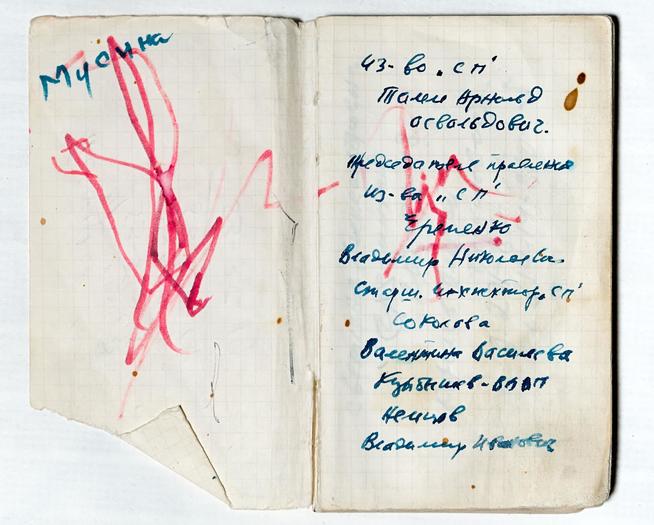 Мусина
из-во „СП"
Тамм Арнольд
Освальдович.
председатель правления
из-ва „СП"
Еременко
Владимир Николаевич.
старш. инспектор „СП"
Соколова
Валентина Васильева
Куйбышев-
Немцов
Владимир Иванович